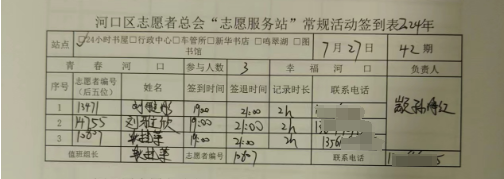 河口区志愿者总会“志愿服务站”常规活动签到表 2024年
站点 ☑24小时书屋□行政中心□车管所□新华书店 □鸣翠湖 □图书馆 7月27日 42期
青春河口 参与人数 3 幸福河口 负责人
序号 志愿者编号（后五位） 姓名 签到时间 签退时间 记录时长 联系电话
1 13971 19:00 21:00 2h
2 14755 19:00 21:00 2h 13
3 10607 19:00 21:00 2h 1356
值班组长 志愿者编号 10607 联系电话 1 5